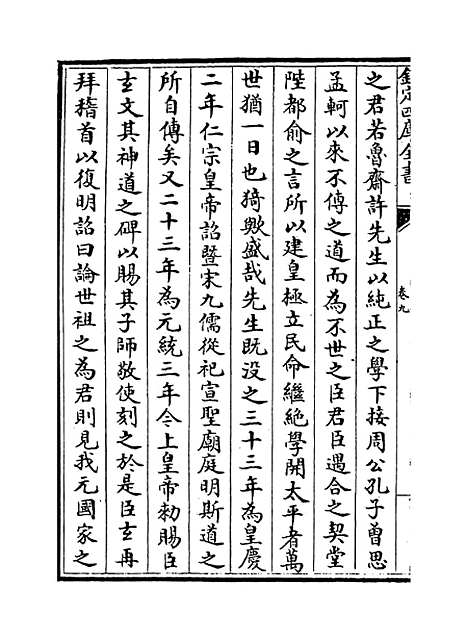 欽定四庫全書
卷九
之君若魯齋許先生以純正之學下接周公孔子曾思
孟軻以來不傳之道而為不世之臣君臣遇合之契堂
陛都俞之言所以建皇極立民命繼絶學開太平者萬
世猶一日也猗歟盛哉先生既没之三十三年為皇慶
二年仁宗皇帝詔暨宋九儒從祀宣聖廟庭明斯道之
所自傳矣又二十三年為元統三年今上皇帝勅賜臣
玄文其神道之碑以賜其子師敬使刻之於是臣玄再
拜稽首以復明詔曰論世祖之為君則見我元國家之